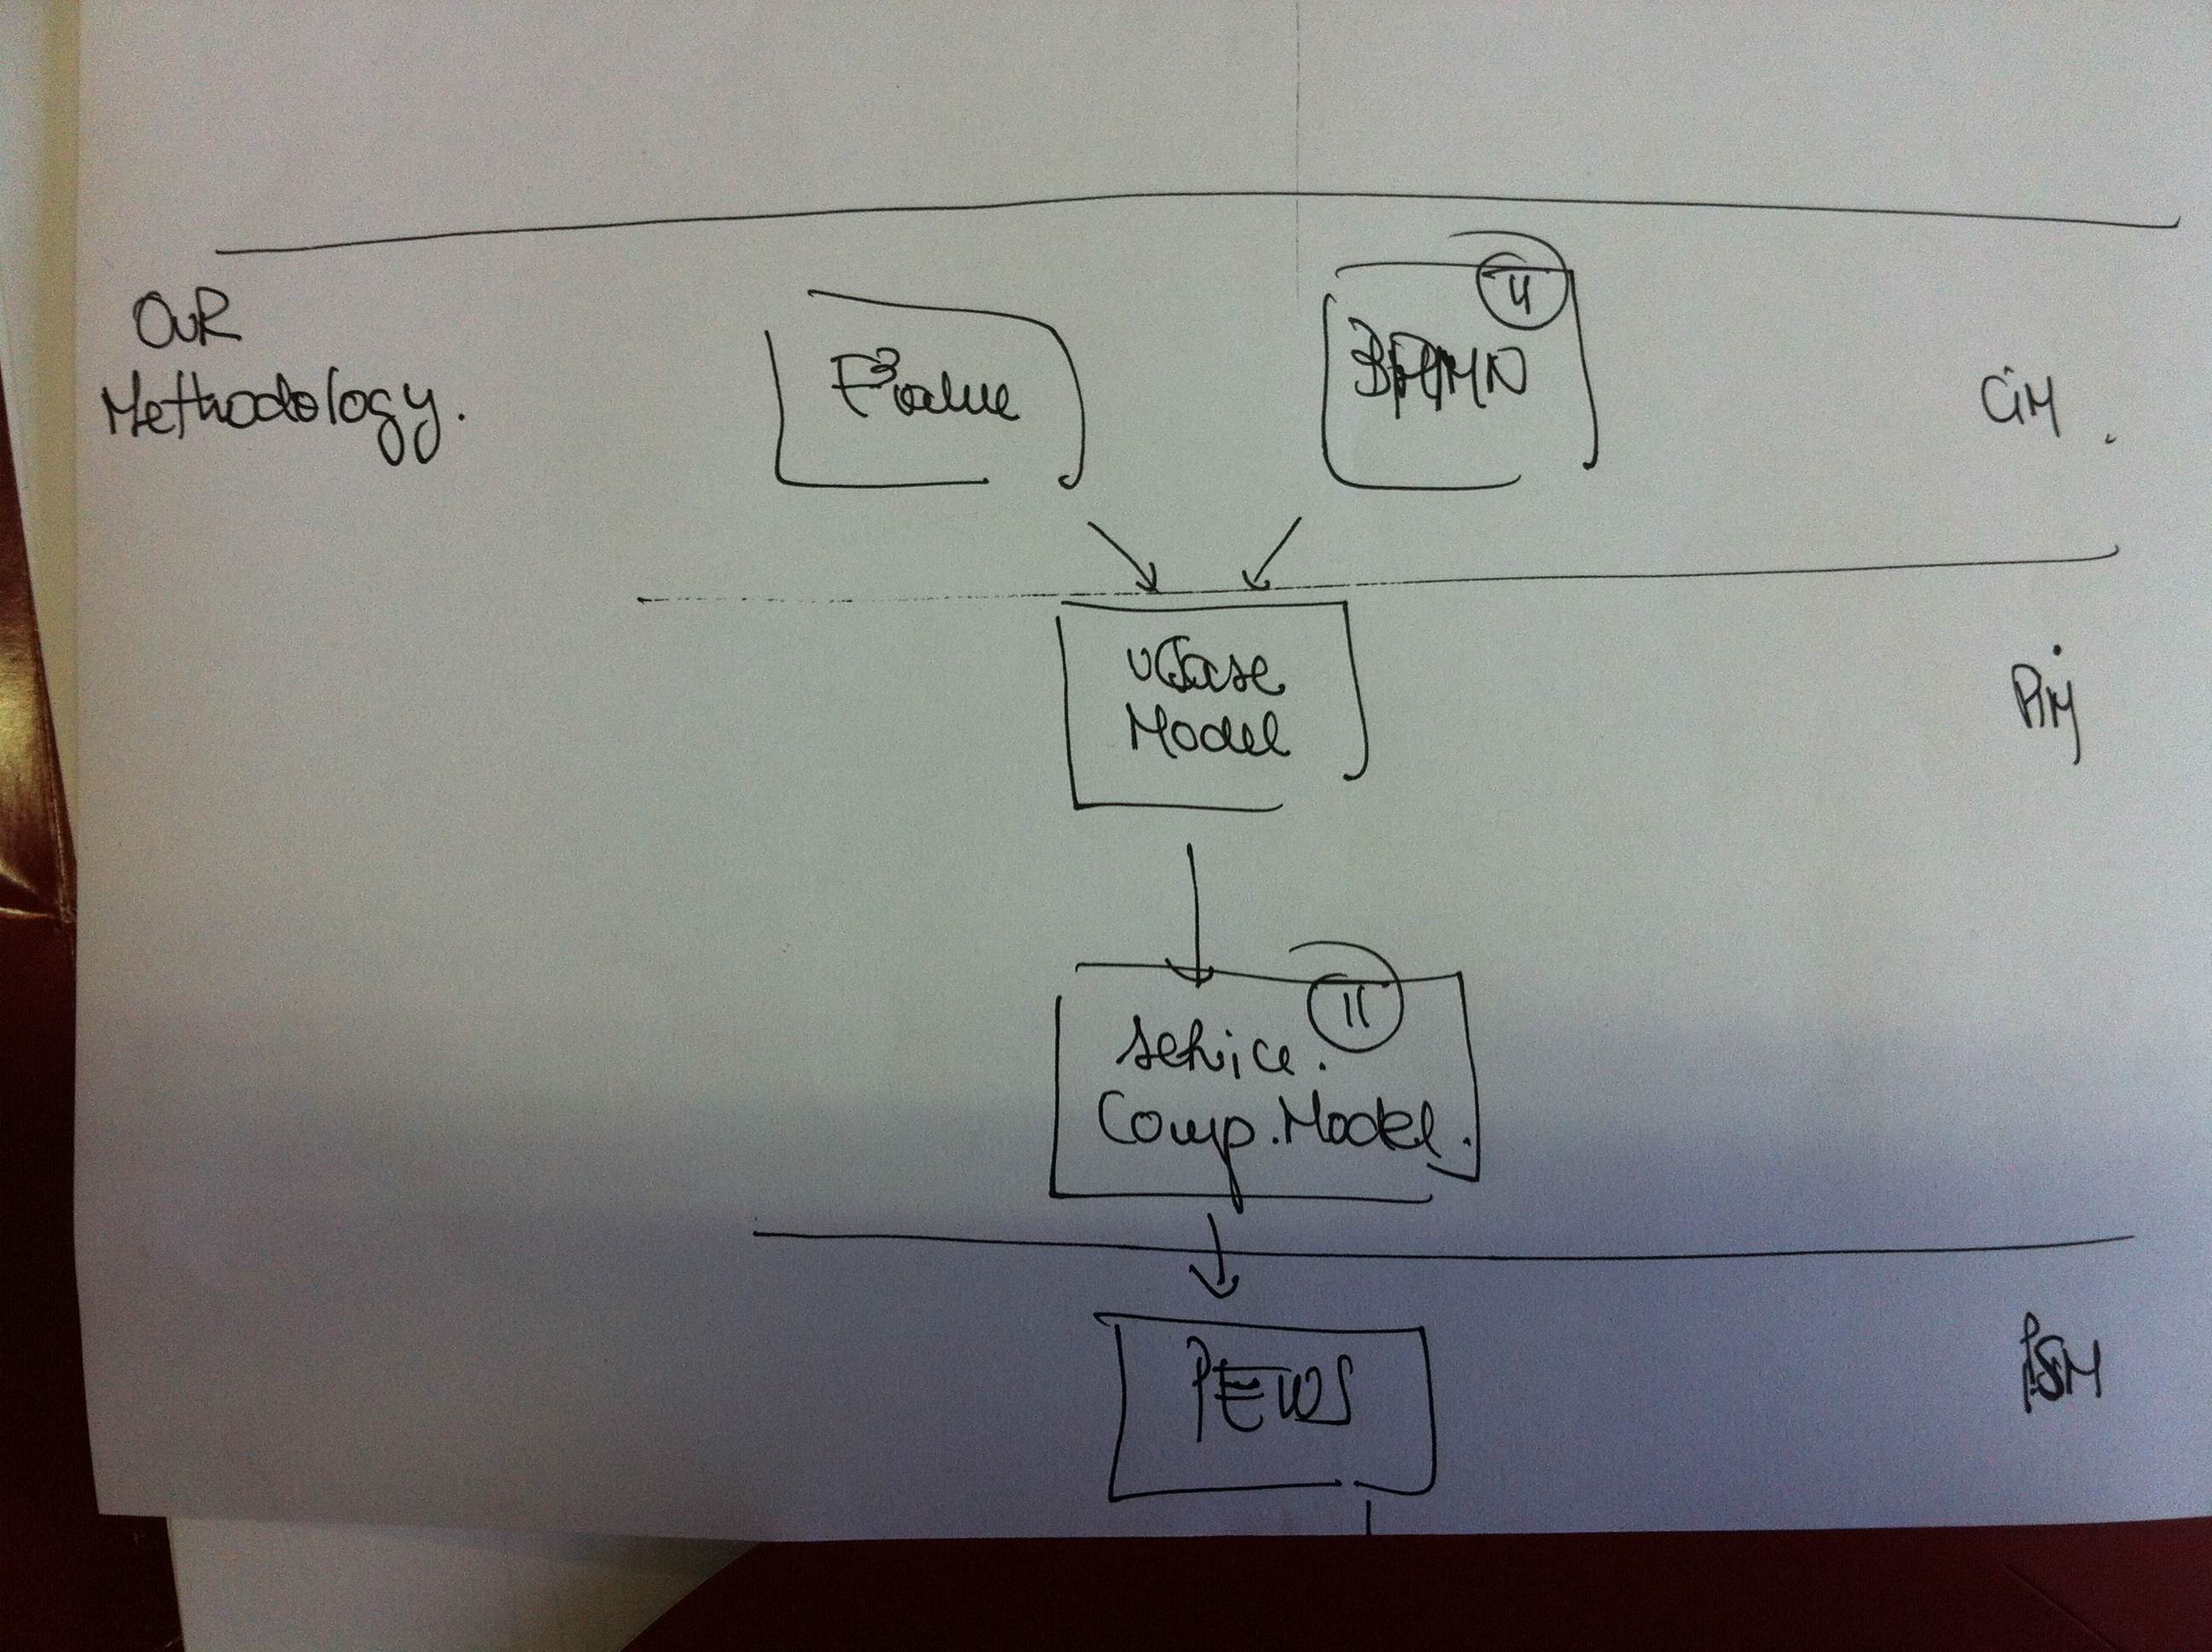 OuR
Methodology.
E3value
BPMN
CiM
UCase
Model
PiM
Service
Comp. Model.
PEWS
PSM